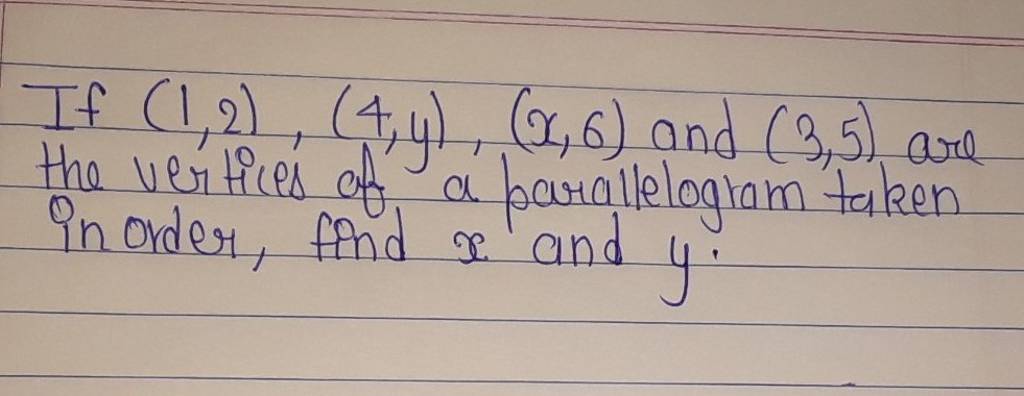 If (1,2), (4,y), (x,6) and (3,5) are
the vertices of a parallelogram taken
in order, find x and y.